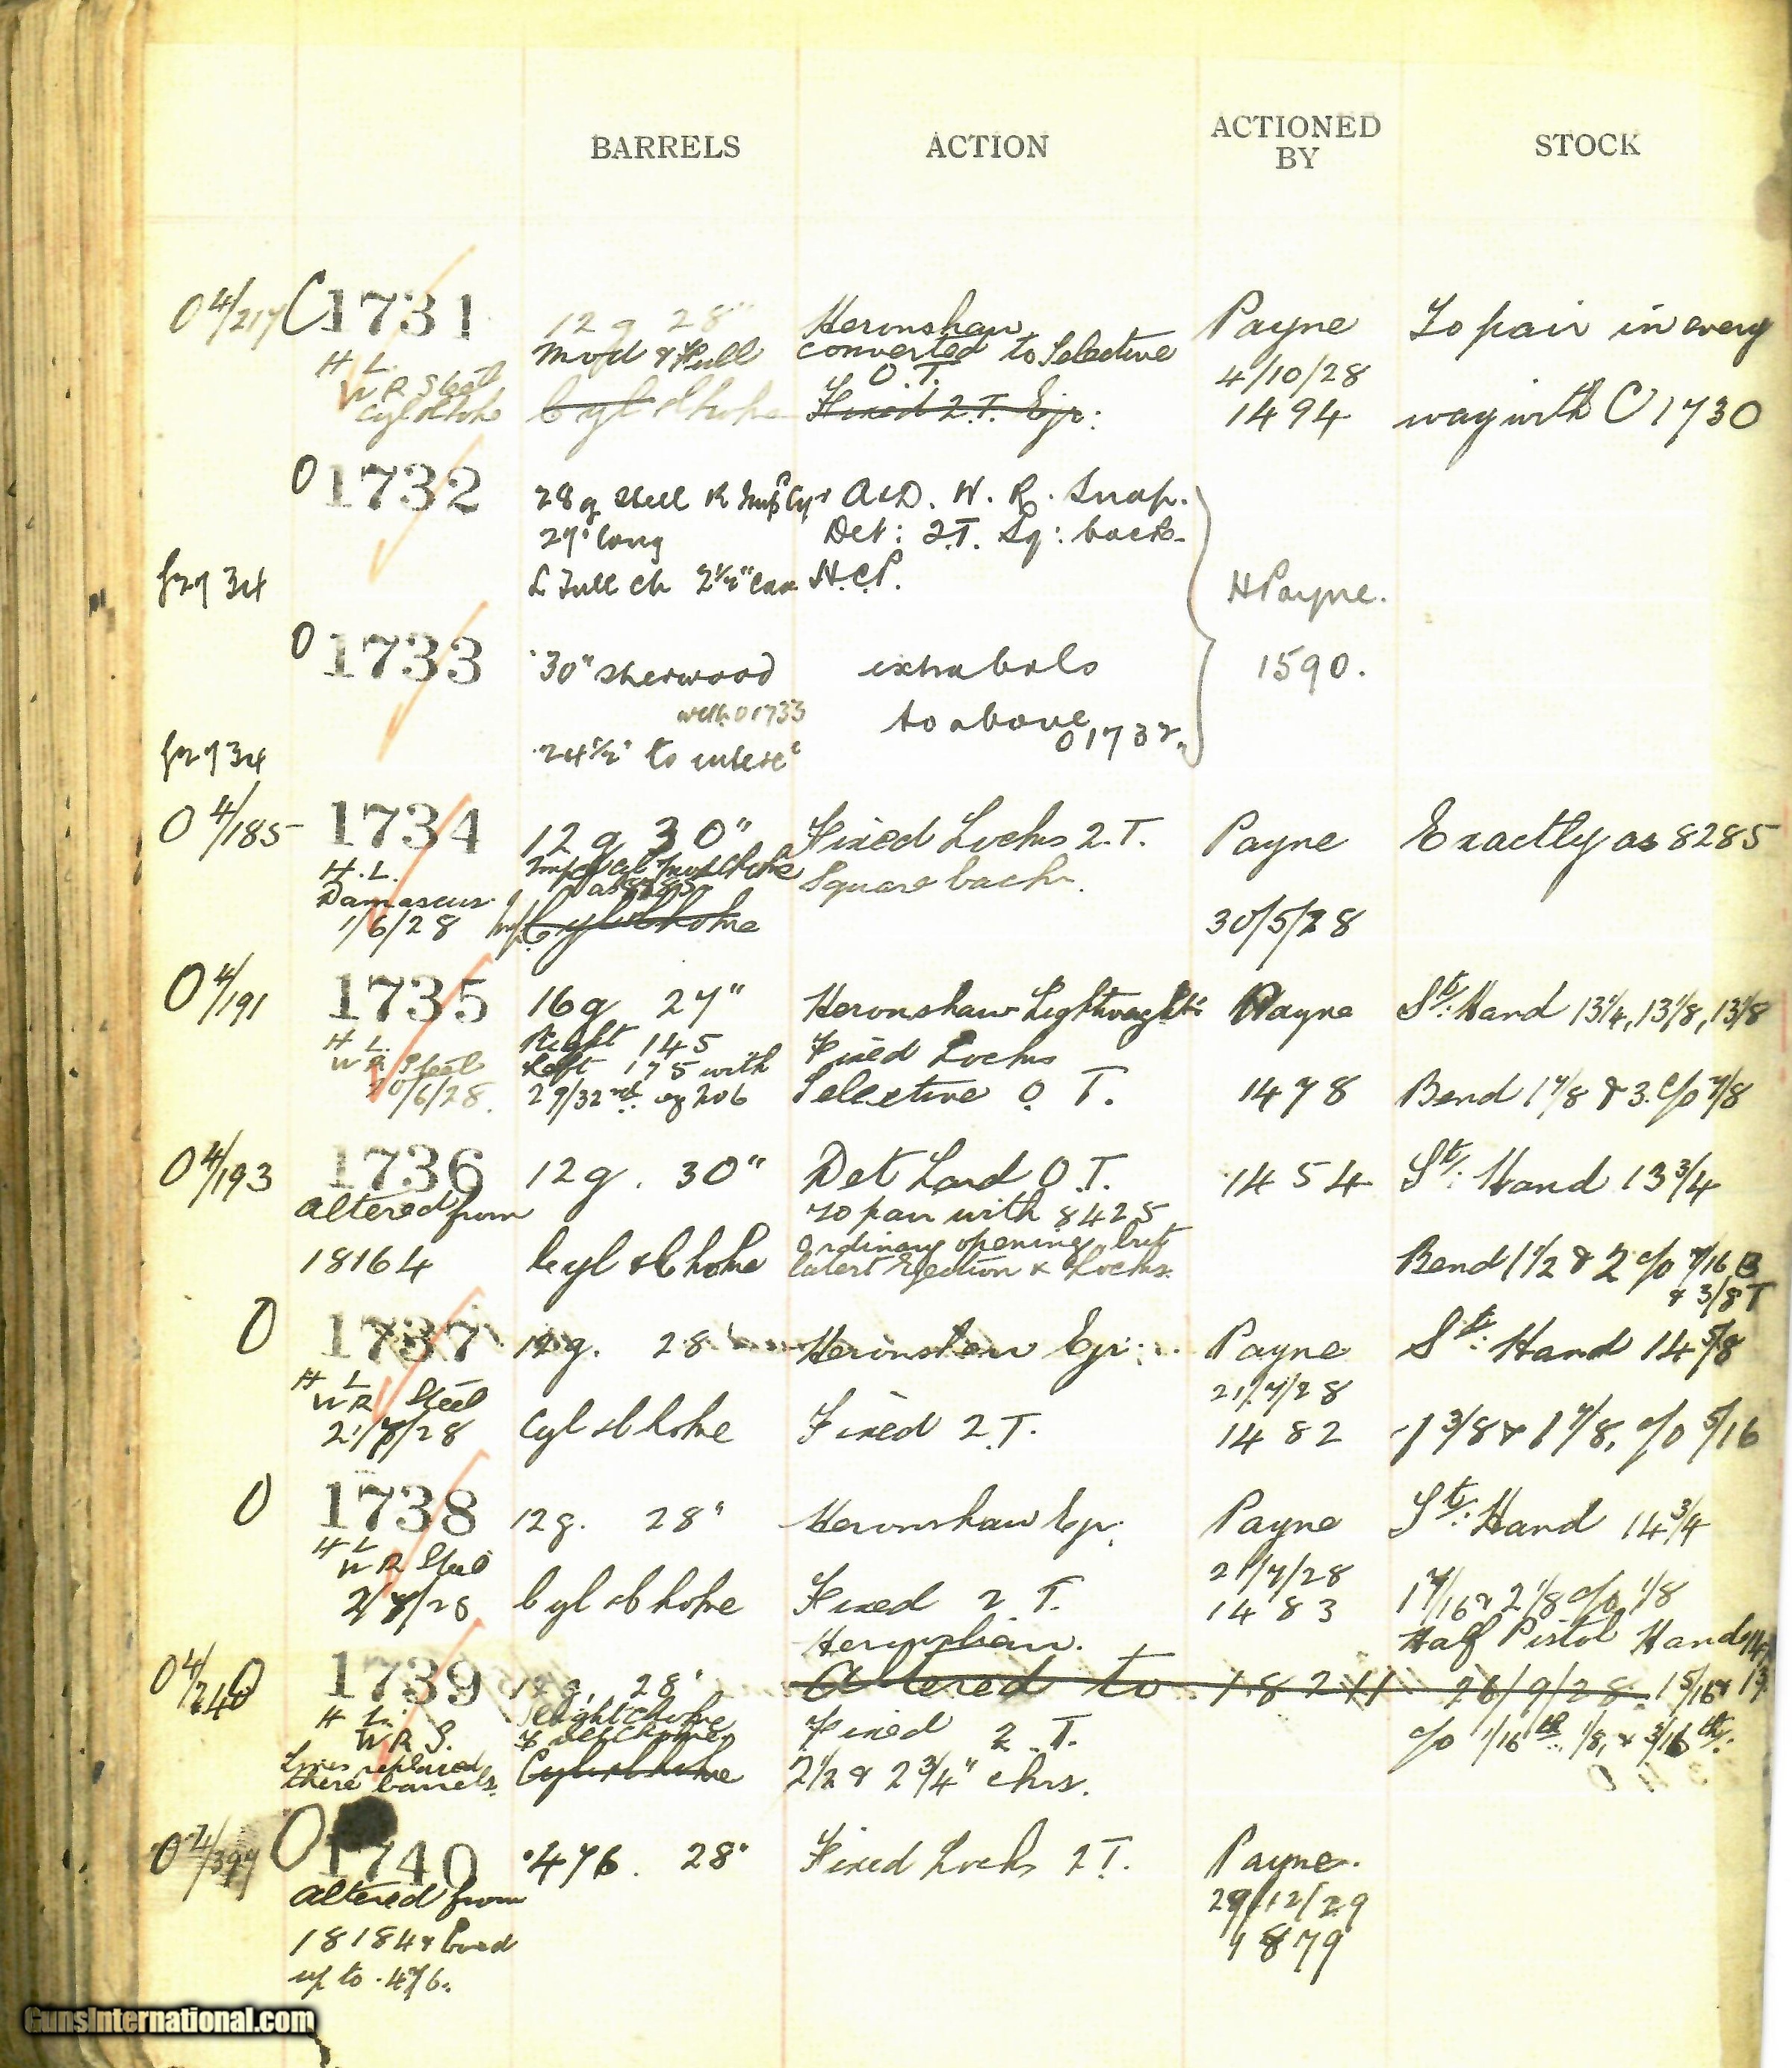 BARRELS ACTION ACTIONED BY STOCK
O 4/217 C1731 12g 28" Heronshaw Payne To pair in every
H. L. Mod & Full converted to Selective 4/10/28
W R Steel O.T.
Cyl & Choke Cyl & Choke Fixed 2.T. Ejr: 1494 way with C 1730
O 1732 28g Steel R Imp Cyl A&D. W. R. Snap.
27" long Det: 2T. Sq: back
L Full Ch 2½" Cax H.C.P. H Payne.
O 1733 30" Sherwood extra brls 1590.
with O 1733 to above
24½" to O 1732.
O 4/185 1734 12g 30" Fixed Locks 2.T. Payne Exactly as 8285
H. L. Imp Cyl & Mod Choke Square back.
Damascus as 8285
1/6/28 Cyl & Choke 30/5/28
O 4/191 1735 16g 27" Heronshaw Lightweight Payne St: Hand 13¼, 13⅛, 13⅛
H L. Right 145 Fixed Locks
W R Steel Left 175 with
20/6/28. 29/32nd og 206 Selective O. T. 1478 Bend 1 7/8 & 3. C/o 7/8
O 4/193 1736 12g. 30" Det Lard O.T. 1454 St: Hand 13¾
altered from to pair with 8425
18164 Cyl & Choke ordinary opening but Bend 1½ & 2 c/o 7/16 B
latest Ejection & Locks. & 3/8 T
O 1737 12g. 28" Heronshaw Ejr: Payne St: Hand 14⅝
H L 21/7/28
W R Steel
21/7/28 Cyl & Choke Fixed 2.T. 1482 1 3/8 & 1 7/8, c/o 5/16
O 1738 12g. 28" Heronshaw Ejr: Payne St: Hand 14¾
H L 21/7/28
W R Steel
2/7/28 Cyl & Choke Fixed 2 T. 1483 1 7/16 & 2 1/8 c/o 1/8
Heronshaw. Half Pistol Hand 14
O 4/240 1739 12g. 28" Altered to 18211 26/9/28. 1 5/16 &
H L. Right Choke Fixed 2. T. c/o 1/16th. 1/8, & 3/16th.
W R S. & Left Choke
replaced
these barrels. Cyl & Choke 2½ & 2¾" chrs.
O 1740 .476. 28" Fixed Locks 2T. Payne.
altered from 29/12/29
18184 & bored 879
up to .476.
GunsInternational.com